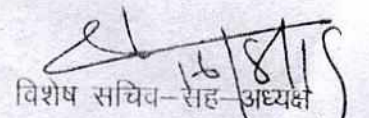 16/8/15
विशेष सचिव-सह-अध्यक्ष